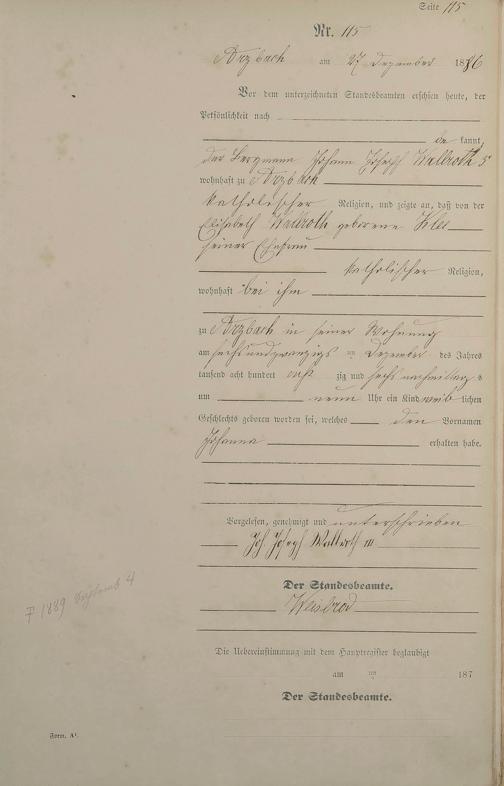 Seite 115
Nr. 115
Arzbach am 27 Dezember 1886
Vor dem unterzeichneten Standesbeamten erschien heute, der
Persönlichkeit nach
be kannt,
der Bergmann Johann Joseph Wallroth
wohnhaft zu Arzbach
katholischer Religion, und zeigte an, daß von der
Elisabeth Wallroth geborene Klee
seiner Ehefrau
katholischer Religion,
wohnhaft bei ihm
zu Arzbach in seiner Wohnung
am sechsundzwanzigs ten Dezember des Jahres
tausend acht hundert acht zig und sechs nachmittag s
um neun Uhr ein Kind weib lichen
Geschlechts geboren worden sei, welches den Vornamen
Johanna erhalten habe.
Vorgelesen, genehmigt und unterschrieben
Joh Joseph Wallroth III
Der Standesbeamte.
Weisbrod
† 1889 4
Die Uebereinstimmung mit dem Hauptregister beglaubigt
am ten 187
Der Standesbeamte.
Form. A¹.